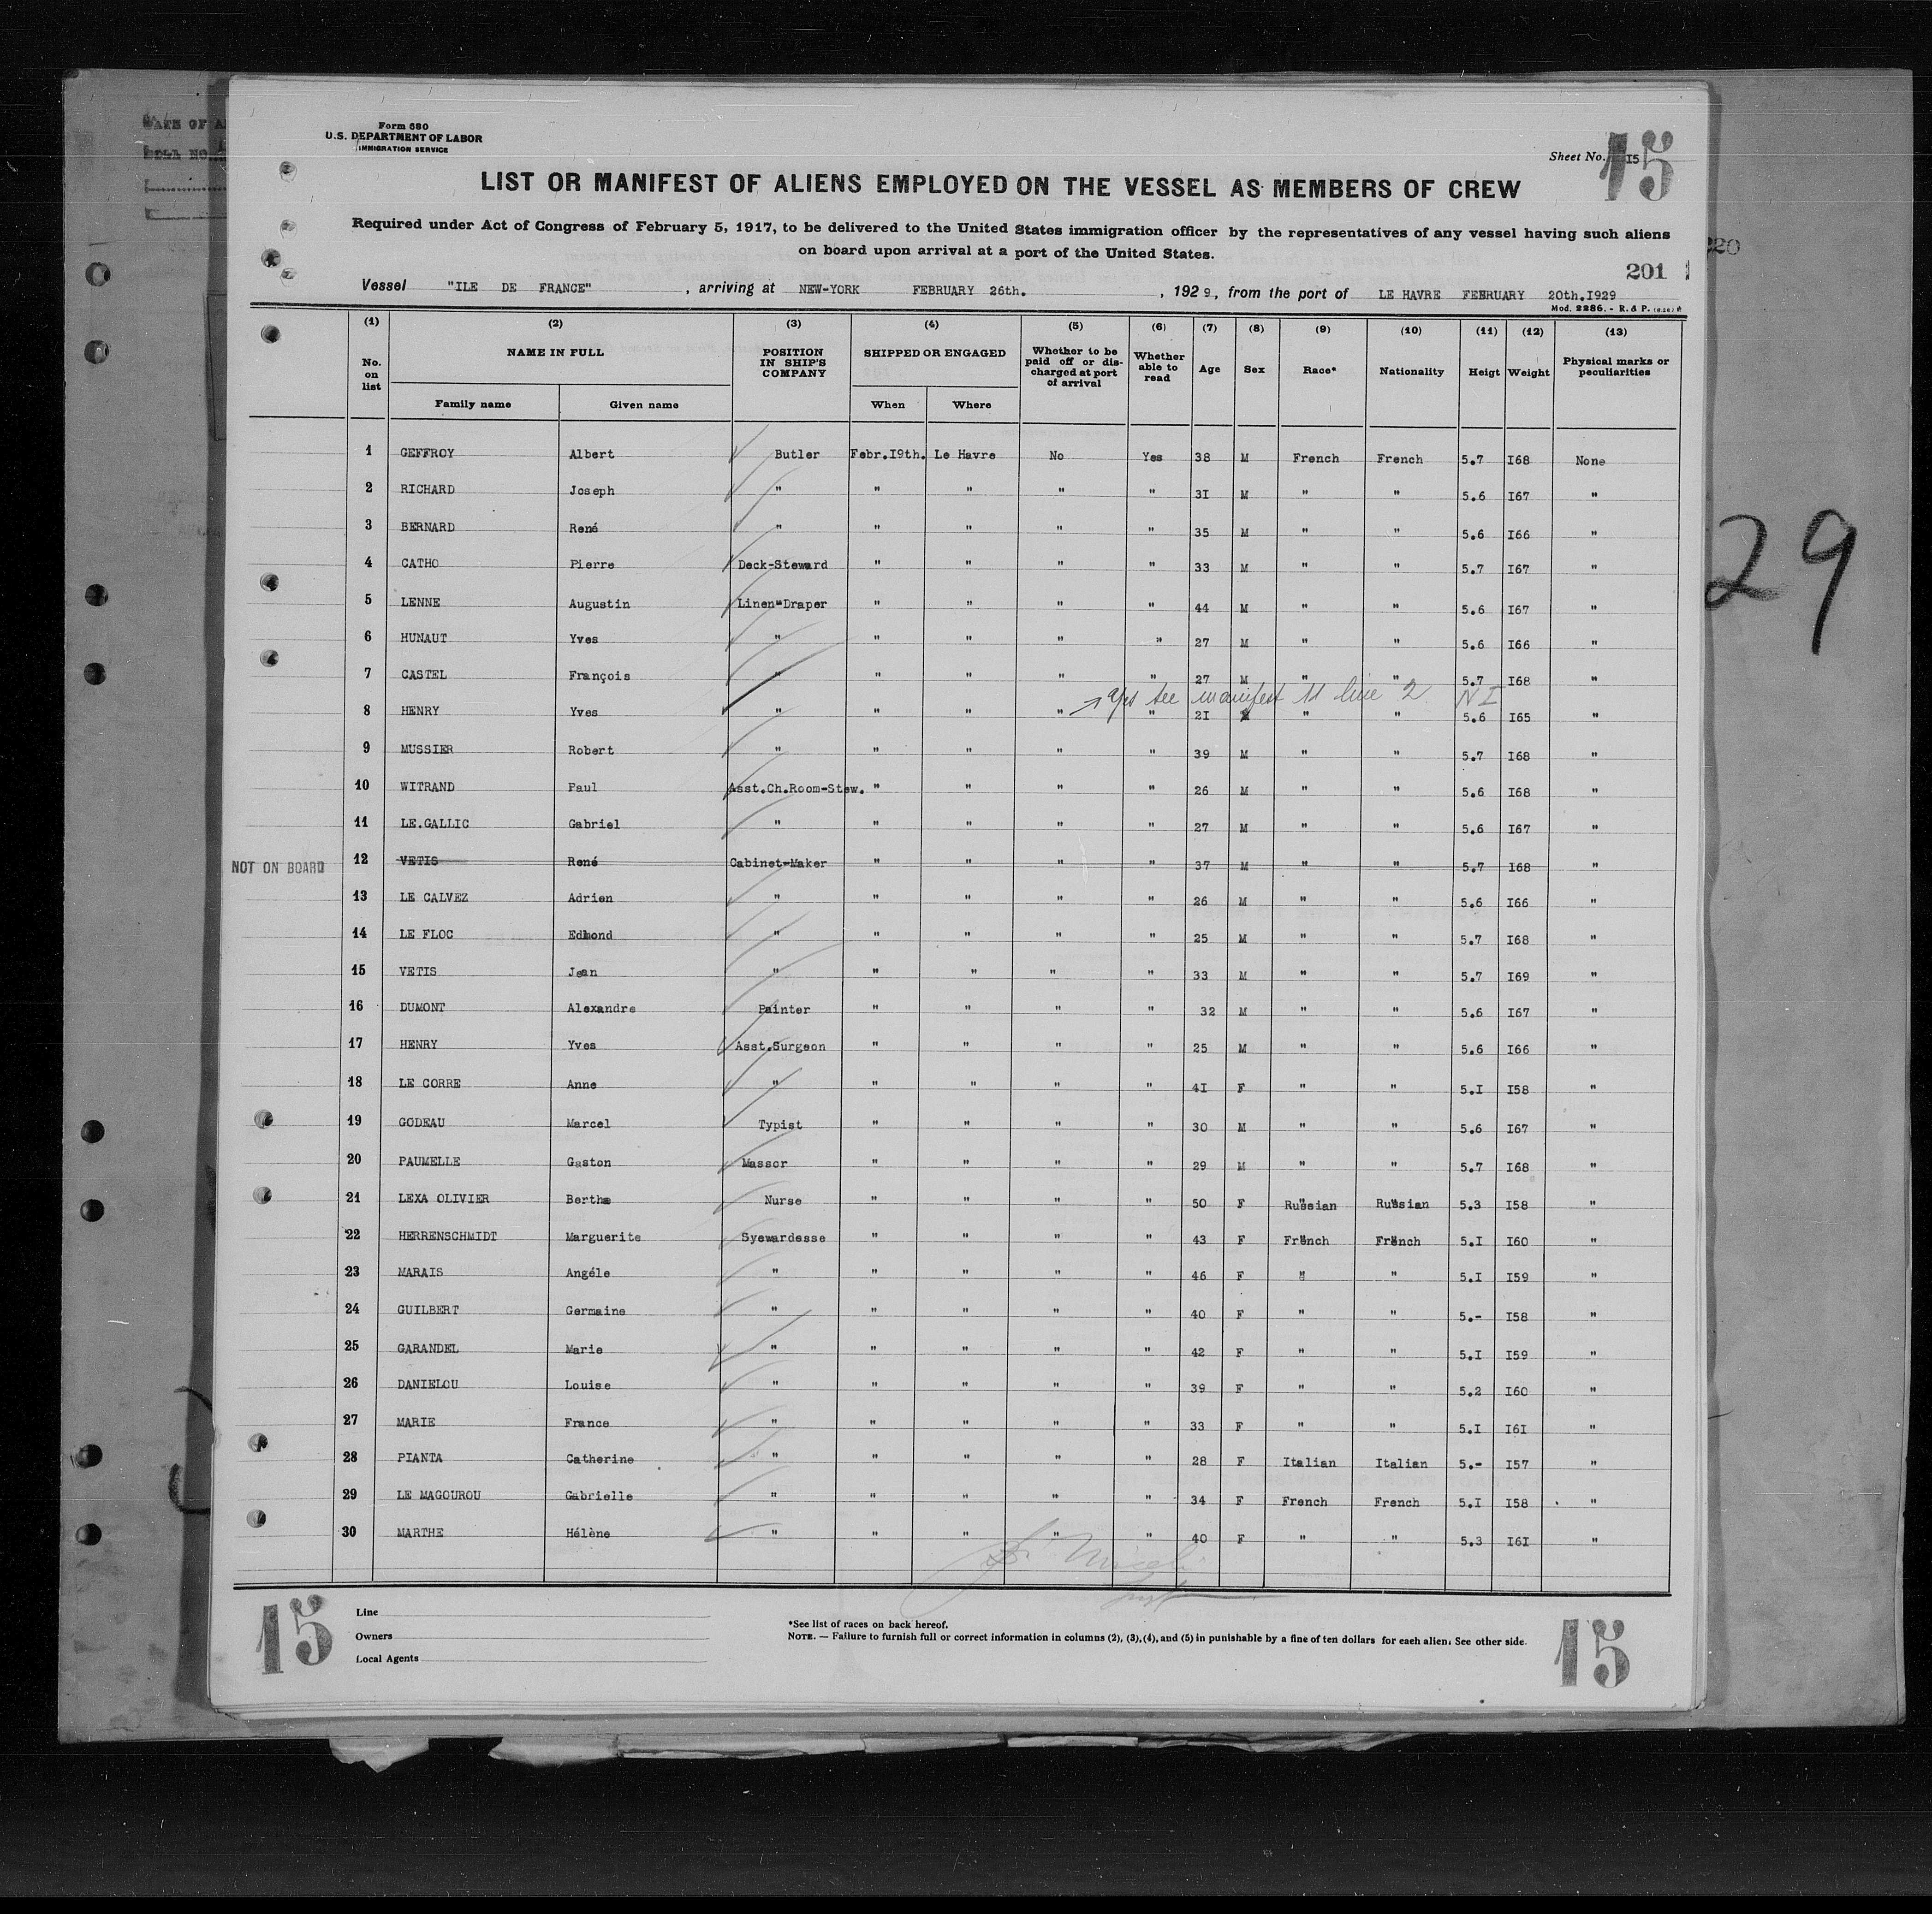 Form 680
U.S. DEPARTMENT OF LABOR
IMMIGRATION SERVICE
Sheet No. I5
15
LIST OR MANIFEST OF ALIENS EMPLOYED ON THE VESSEL AS MEMBERS OF CREW
Required under Act of Congress of February 5, 1917, to be delivered to the United States immigration officer by the representatives of any vessel having such aliens
on board upon arrival at a port of the United States.
201
Vessel "ILE DE FRANCE" , arriving at NEW-YORK FEBRUARY 26th. , 1929, from the port of LE HAVRE FEBRUARY 20th.I929
Mod. 2286. - R. & P.
(1) (2) (3) (4) (5) (6) (7) (8) (9) (10) (11) (12) (13)
No. on list NAME IN FULL POSITION IN SHIP'S COMPANY SHIPPED OR ENGAGED Whether to be paid off or discharged at port of arrival Whether able to read Age Sex Race* Nationality Heigt Weight Physical marks or peculiarities
Family name Given name When Where
1 GEFFROY Albert Butler Febr.I9th. Le Havre No Yes 38 M French French 5.7 I68 None
2 RICHARD Joseph " " " " " 3I M " " 5.6 I67 "
3 BERNARD René " " " " " 35 M " " 5.6 I66 "
4 CATHO Pierre Deck-Steward " " " " 33 M " " 5.7 I67 "
5 LENNE Augustin Linen-Draper " " " " 44 M " " 5.6 I67 "
6 HUNAUT Yves " " " " " 27 M " " 5.6 I66 "
7 CASTEL François " " " " " 27 M " " 5.7 I68 "
see manifest 11 line 2 NI
8 HENRY Yves " " " " " 2I M " " 5.6 I65 "
9 MUSSIER Robert " " " " " 39 M " " 5.7 I68 "
10 WITRAND Paul Asst.Ch.Room-Stew. " " " " 26 M " " 5.6 I68 "
11 LE.GALLIC Gabriel " " " " " 27 M " " 5.6 I67 "
NOT ON BOARD 12 VETIS René Cabinet-Maker " " " " 37 M " " 5.7 I68 "
13 LE CALVEZ Adrien " " " " " 26 M " " 5.6 I66 "
14 LE FLOC Edmond " " " " " 25 M " " 5.7 I68 "
15 VETIS Jean " " " " " 33 M " " 5.7 I69 "
16 DUMONT Alexandre Painter " " " " 32 M " " 5.6 I67 "
17 HENRY Yves Asst.Surgeon " " " " 25 M " " 5.6 I66 "
18 LE CORRE Anne " " " " " 4I F " " 5.I I58 "
19 GODEAU Marcel Typist " " " " 30 M " " 5.6 I67 "
20 PAUMELLE Gaston Massor " " " " 29 M " " 5.7 I68 "
21 LEXA OLIVIER Berthe Nurse " " " " 50 F Russian Russian 5.3 I58 "
22 HERRENSCHMIDT Marguerite Syewardesse " " " " 43 F French French 5.I I60 "
23 MARAIS Angéle " " " " " 46 F " " 5.I I59 "
24 GUILBERT Germaine " " " " " 40 F " " 5.- I58 "
25 GARANDEL Marie " " " " " 42 F " " 5.I I59 "
26 DANIELOU Louise " " " " " 39 F " " 5.2 I60 "
27 MARIE France " " " " " 33 F " " 5.I I6I "
28 PIANTA Catherine " " " " " 28 F Italian Italian 5.- I57 "
29 LE MAGOUROU Gabrielle " " " " " 34 F French French 5.I I58 "
30 MARTHE Hélène " " " " " 40 F " " 5.3 I6I "
15
Line
Owners
Local Agents
*See list of races on back hereof.
NOTE. — Failure to furnish full or correct information in columns (2), (3), (4), and (5) in punishable by a fine of ten dollars for each alien. See other side.
15
29